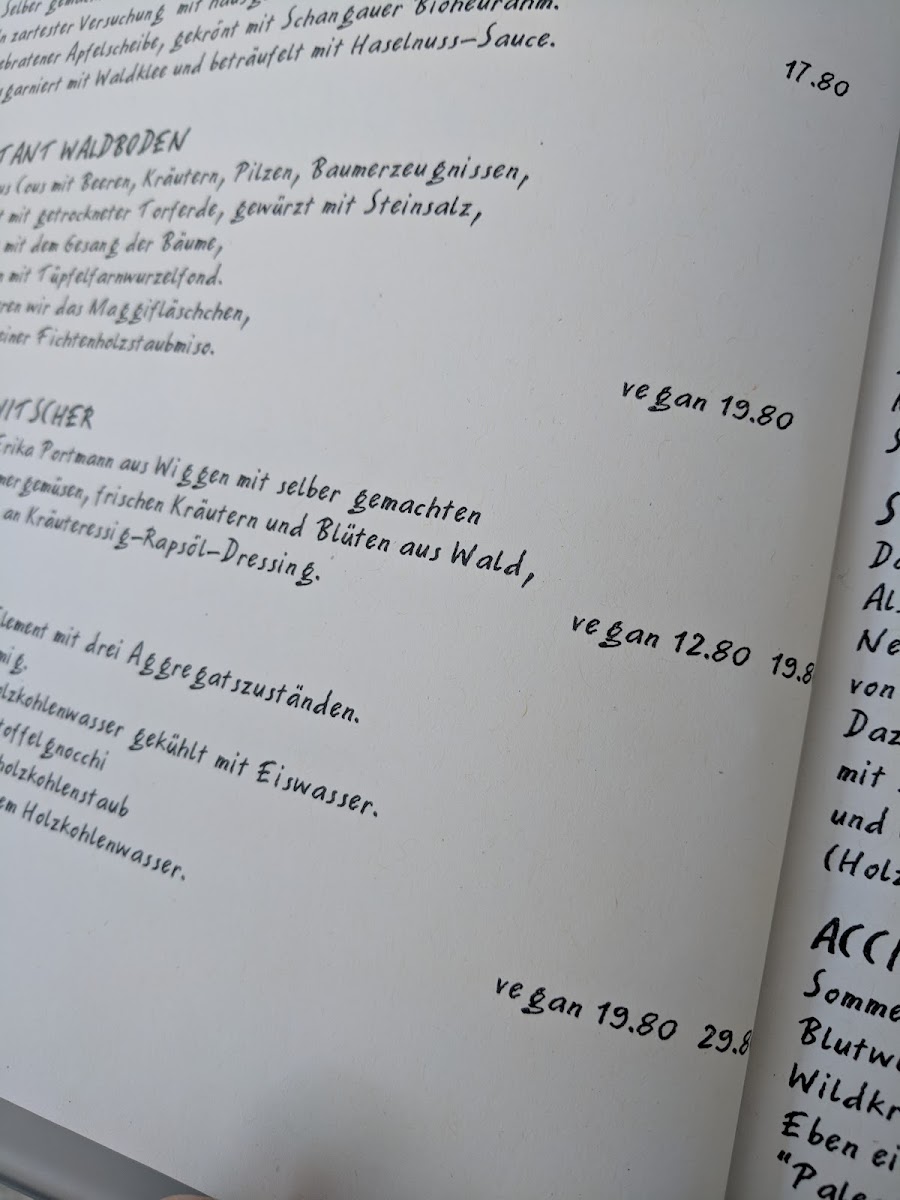 Selber
zartester Versuchung mit
ebratener Apfelscheibe, gekrönt mit Schangauer Bioheurahm.
garniert mit Waldklee und beträufelt mit Haselnuss-Sauce.
17.80
TANT WALDBODEN
us Cous mit Beeren, Kräutern, Pilzen, Baumerzeugnissen,
mit getrockneter Torferde, gewürzt mit Steinsalz,
mit dem Gesang der Bäume,
mit Tüpfelfarnwurzelfond.
ren wir das Maggifläschchen,
einer Fichtenholzstaubmiso.
vegan 19.80
ITSCHER
Erika Portmann aus Wiggen mit selber gemachten
mergemüsen, frischen Kräutern und Blüten aus Wald,
an Kräuteressig-Rapsöl-Dressing.
vegan 12.80 19.8
lement mit drei Aggregatszuständen.
mig.
olzkohlenwasser gekühlt mit Eiswasser.
toffelgnocchi
holzkohlenstaub
em Holzkohlenwasser.
vegan 19.80 29.8
S
Da
Als
Ne
von
Daz
mit
und
(Holz
ACCH
Somme
Blutwu
Wildkr
Eben ei
"Pale